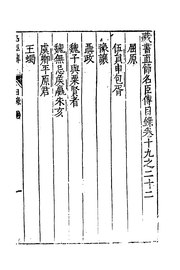 藏書直節名臣傳目錄卷十九之二十二
屈原
伍員申包胥
豫讓
聶政
魏無忌侯嬴朱亥
虞卿平原君
王蠋